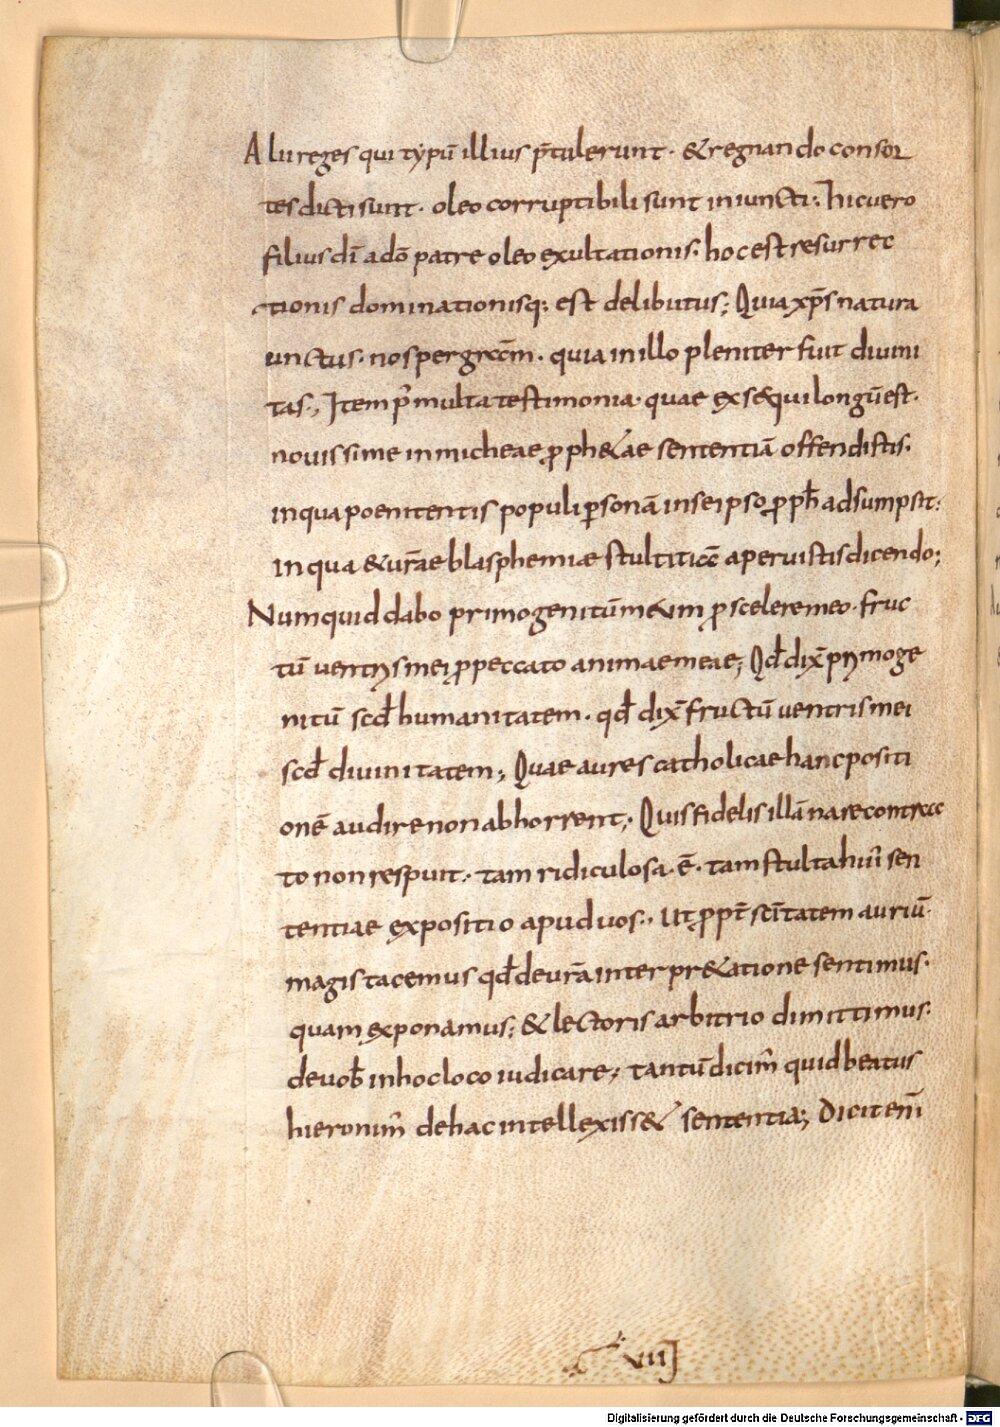 Alii reges qui typū illius p̄tulerunt · & regnando consor
tes dicti sunt · oleo corruptibili sunt in iuncti; hic uero
filius dī a dō patre oleo exultationis · hoc est resurrec
ctionis dominationisq; est delibutus; Quia xp̄s natura
unctus · nos per gratiā · quia in illo pleniter fuit diuini
tas; Item p̄ multa testimonia · quae exsequi longū est ·
nouissime in micheae prophetae sententiā offendistis ·
in qua poenitentis populi personā in se ipso proph̄ adsumpsit:
In qua & ur̄ae blasphemiae stultitiā aperuistis dicendo;
Numquid dabo primogenitū meum pro scelere meo · fruc
tū uentris mei pro peccato animae meae; Qd̄ dix̄ primoge
nitū scd̄ humanitatem · qd̄ dix̄ fructū uentris mei
scd̄ diuinitatem; Quae aures catholicae hanc positi
onē audire non abhorrent; Quis fidelis illā nare contrac
to non respuit · tam ridiculosa · ē · tam stulta hui' sen
tentiae expositio apud uos · Ut propt̄ sc̄itatem auriū
magis tacemus qd̄ de ur̄a interpr&atione sentimus ·
quam exponamus; & lectoris arbitrio dimittimus ·
de uob̄ in hoc loco iudicare; tantū dicim' quid beatus
hieronim' de hac intellexiss& sententia; Dicit enī
VII
Digitalisierung gefördert durch die Deutsche Forschungsgemeinschaft - DFG